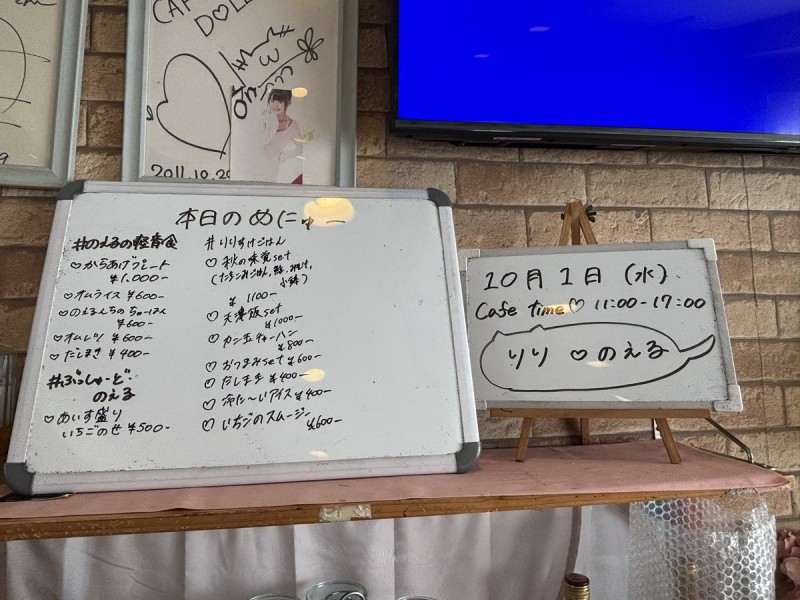 CAF
DOLL
2011.10.29
本日のめにゅー
#のえるの軽食
♡からあげプレート
¥1,000-
♡オムライス ¥600-
♡のえるんちのちゃーはん
¥600-
♡オムレツ ¥600-
♡だしまき ¥400-
#ぶっしゅ・ど・
のえる
♡あいす盛り
いちごのせ ¥500-
#りりすけごはん
♡秋の味覚set
小鉢)
¥1100-
♡天津飯set
¥1000-
♡カニ玉チャーハン
¥800-
♡おつまみset ¥600-
♡だしまき ¥400-
♡冷た〜いアイス ¥400-
♡いちごのスムージー
¥600-
10月1日(水)
Cafe time♡ 11:00-17:00
りり ♡のえる